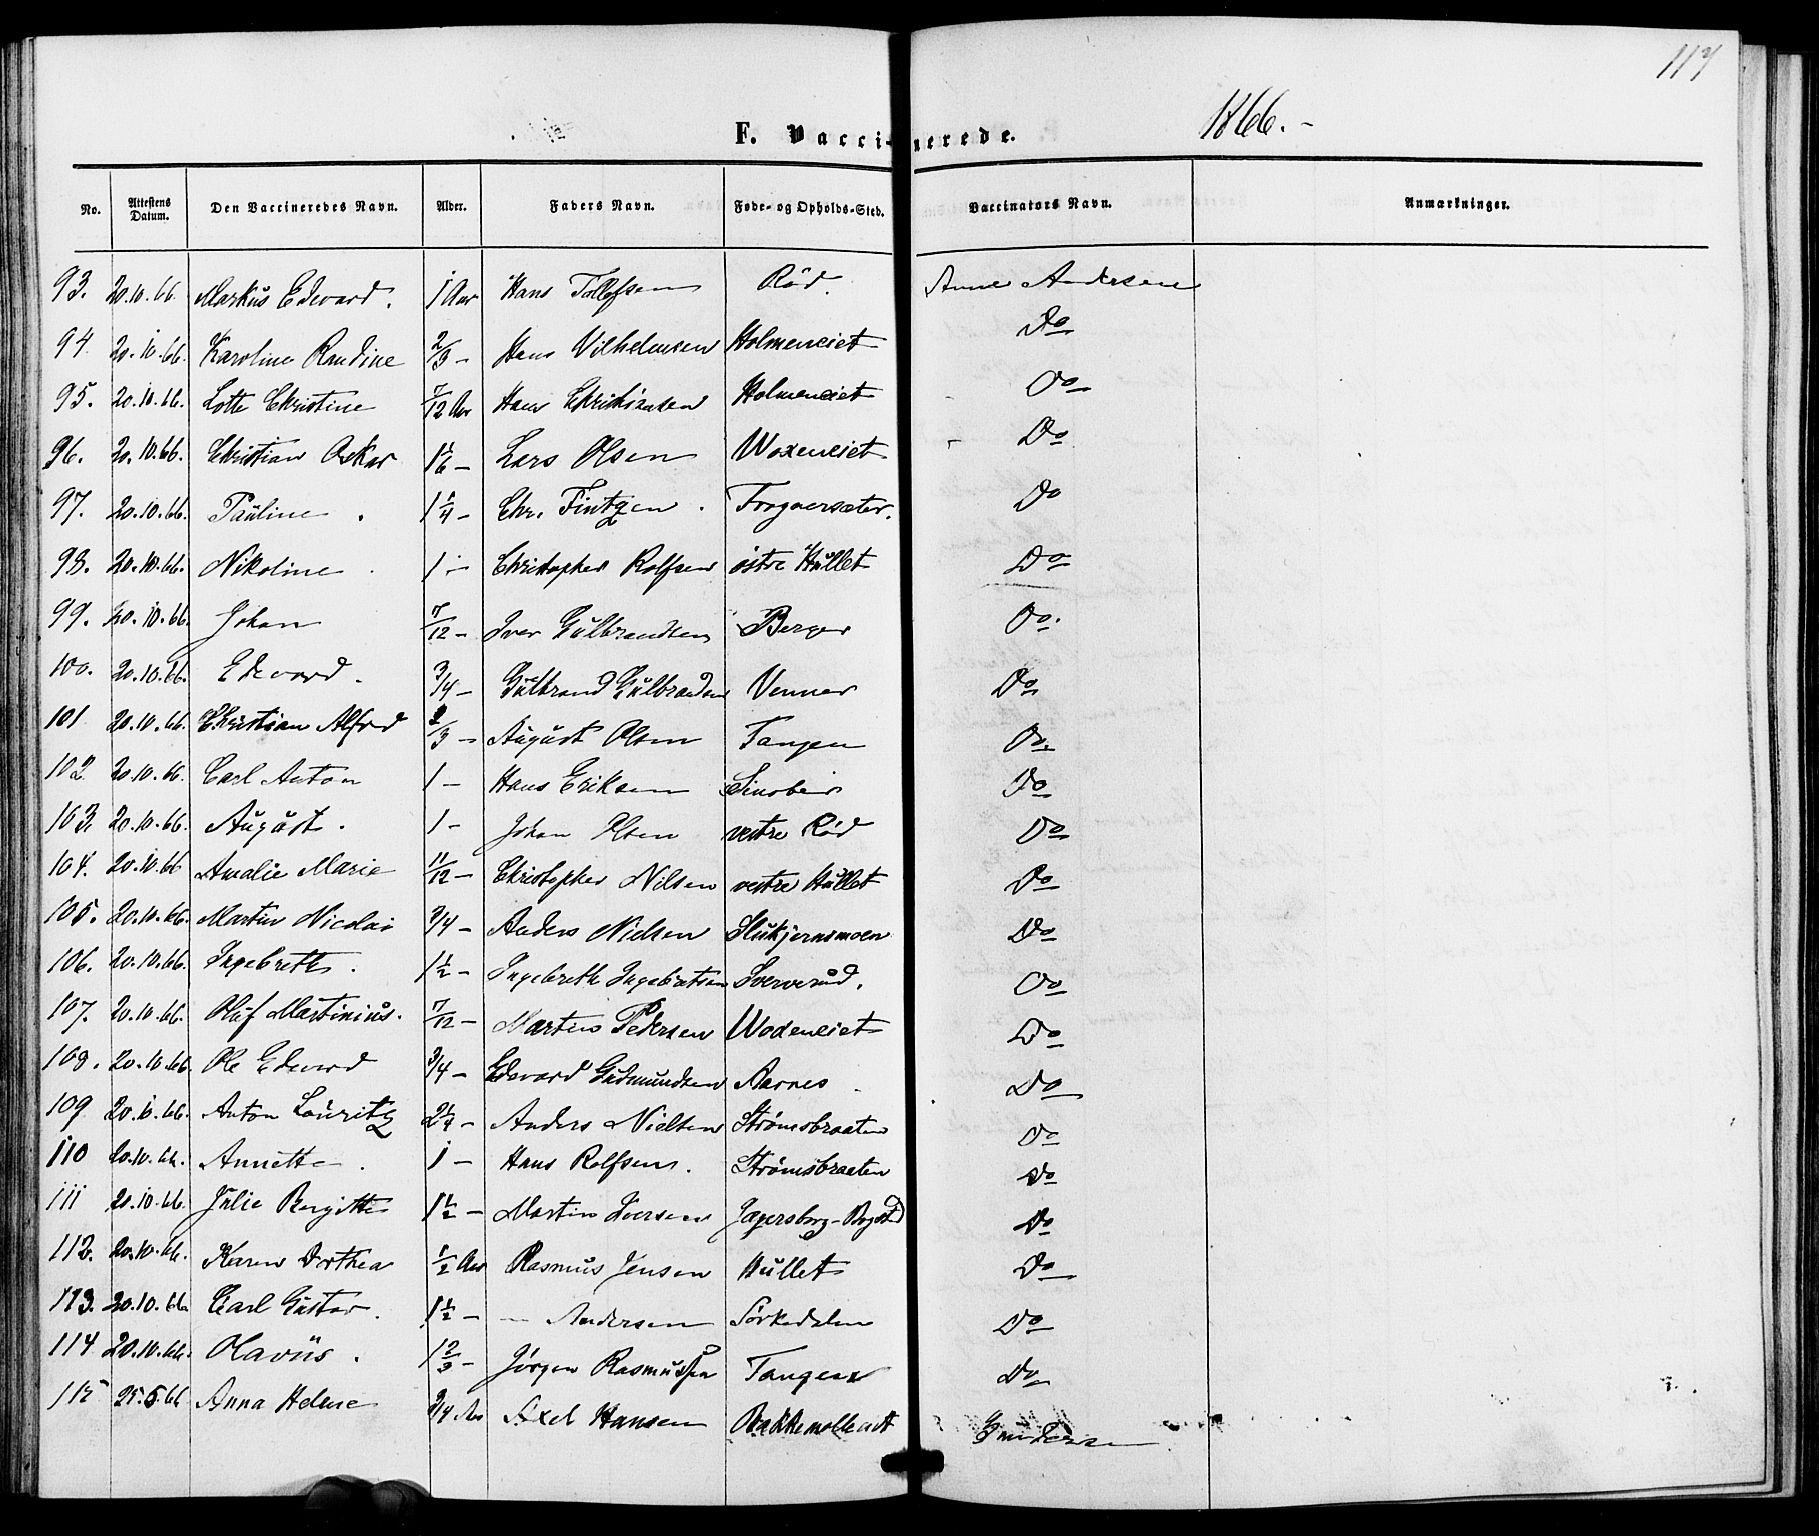 117
F. Vaccinerede. 1866.-
No. Attestens Datum. Den Vaccineredes Navn. Alder. Faders Navn. Føde- og Opholds-Sted. Vaccinators Navn. Anmærkninger.
93. 20.10.66. Markus Edevard. 1 Aar Hans Tollefsen Röd. Anne Andersen
94 20.10.66. Karoline Randine 2/3 - Hans Vilhelmsen Holmeneiet Do
95. 20.10.66. Lotte Christine 7/12 Aar Hans Christiansen Holmeneiet Do
96. 20.10.66. Christian Oskar 1 1/6 - Lars Olsen Woxeneiet Do
97. 20.10.66. Pauline . 1 1/4 - Chr. Fintzen . Frognersæter. Do
98. 20.10.66. Nikoline . 1 - Christopher Rolfsen östre Hullet Do
99. 20.10.66. Johan 7/12 - Iver Gulbrandsen Berger Do.
100. 20.10.66. Edevard . 3/4 - Gulbrand Gulbrandsen Venner Do
101 20.10.66. Christian Alfred 2/3 - August Olsen Tangen Do.
102 20.10.66. Carl Anton 1 - Hans Eriksen Sinober Do
103. 20.10.66. August . 1 - Johan Olsen vestre Röd Do
104. 20.10.66 Amalie Marie 11/12 - Christopher Nilsen vestre Hullet Do
105. 20.10.66. Martin Nicolai 3/4 - Anders Nielsen Slukjernsmoen Do
106. 20.10.66. Ingebreth . 1 1/2 - Ingebreth Ingebretsen Sververud. Do
107. 20.10.66. Oluf Martinius. 7/12 - Martin Pedersen Woxeneiet Do
108. 20.10.66. Ole Edevard 3/4 - Edevard Gudmundsen Aarnes Do
109 20.10.66. Anton Lauritz 2 1/4 - Anders Nielsen Strømsbraaten Do
110 20.10.66. Annette . 1 - Hans Rolfsen. Strømsbraaten Do
111 20.10.66. Julie Bergitte 1 1/2 - Martin Iversen Jægersborg-Bogstad Do
112. 20.10.66. Karen Dorthea 1/2 Aar Rasmus Jensen Hullet Do
113. 20.10.66 Carl Gustav . 1 1/2 - - Andersen Sörkedalen Do
114 20.10.66. Olavus . 1 2/3 - Jörgen Rasmussen Tangen Do
115 25.5.66 Anna Helene 3/4 Aar Axel Hansen Bakkemölleeiet Gundersen